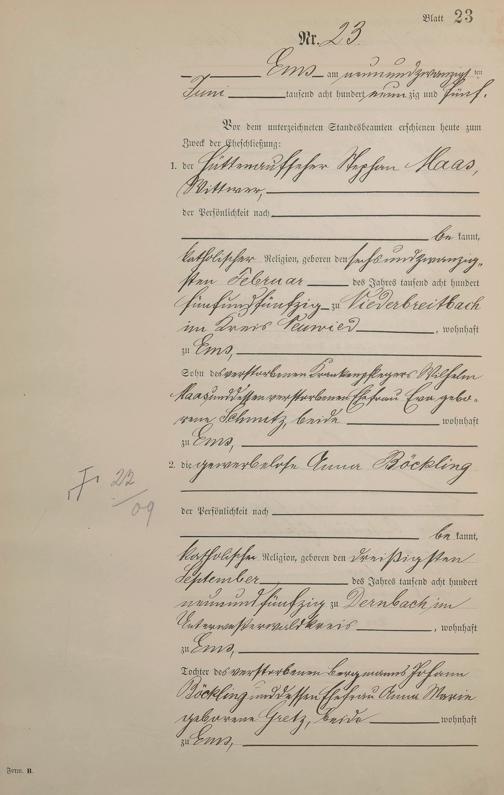 Blatt 23
Nr. 23.
Ems am neunundzwanzigsten
Juni tausend acht hundert neunzig und fünf.
Vor dem unterzeichneten Standesbeamten erschienen heute zum
Zweck der Eheschließung:
1. der Hüttenaufseher Stephan Maas,
Wittwer,
der Persönlichkeit nach
be kannt,
katholischer Religion, geboren den sechsundzwanzig-
sten Februar des Jahres tausend acht hundert
fünfundfünfzig zu Niederbreitbach
im Kreis Neuwied, wohnhaft
zu Ems,
Sohn des verstorbenen Krankenpflegers Wilhelm
Maas und dessen verstorbenen Ehefrau Eva gebo-
rene Schmetz, beide wohnhaft
zu Ems,
2. die gewerbelose Anna Böckling
der Persönlichkeit nach
be kannt,
katholischer Religion, geboren den dreißigsten
September des Jahres tausend acht hundert
neunundfünfzig zu Dernbach im
Unterwesterwaldkreis, wohnhaft
zu Ems,
Tochter des verstorbenen Bergmanns Johann
Böckling und dessen Ehefrau Anna Marie
geborene Gretz, beide wohnhaft
zu Ems,
22
/09
Form. B.